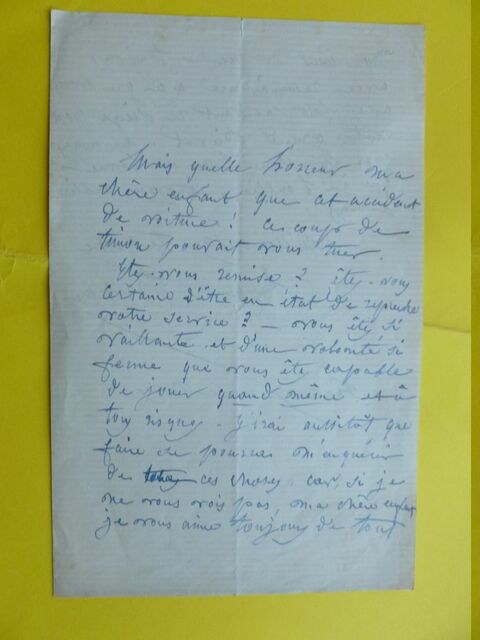 Mais quelle horreur ma
chère enfant que cet accident
de voiture! Ce coup de
timon pouvait vous tuer.
Êtes-vous remise? êtes-vous
certaine d'être en état de reprendre
votre service? — vous êtes si
vaillante et d'une volonté si
ferme que vous êtes capable
de jouer quand même et à
tous risques. J'irai aussitôt que
faire se pourra m'enquérir
de ces choses. car si je
ne vous vois pas, ma chère enfant
je vous aime toujours de tout